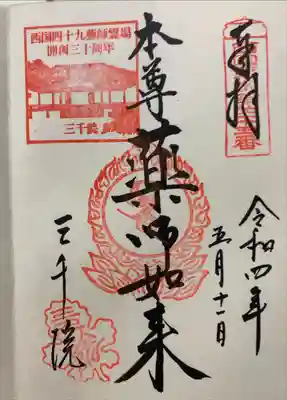 奉拝
令和四年
五月十一日
本尊 薬師如来
西国四十九薬師霊場
開創三十周年
三千院
三千院